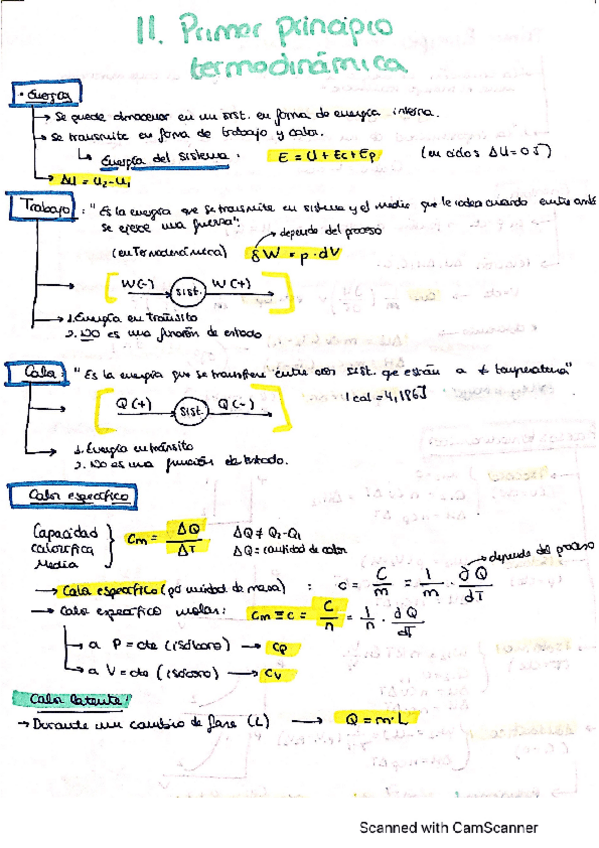 11. Primer principio
termodinámica
· Energía
→ Se puede almacenar en un sist. en forma de energía interna.
→ Se transmite en forma de trabajo y calor.
↳ Energía del sistema: E = U + Ec + Ep (en ciclos ΔU = 0 J)
→ ΔU = U2 - U1
Trabajo: "Es la energía que se transmite en sistema y el medio que le rodea cuando entre ambos
se ejerce una fuerza".
→ depende del proceso
(en Termodinámica) δW = p · dV
W(-) sist. W(+)
1. Energía en tránsito
2. NO es una función de estado
Calor: "Es la energía que se transfiere entre dos sist. que están a ≠ temperatura"
1 cal = 4,186J
Q(+) sist. Q(-)
1. Energía en tránsito
2. No es una función de estado.
Calor específico
Capacidad
calorífica
media
Cm = ΔQ / ΔT
ΔQ ≠ Q2-Q1
ΔQ = cantidad de calor
→ depende del proceso
→ Calor específico (por unidad de masa) : c = C/m = 1/m · ∂Q/dT
→ Calor específico molar: Cm ≡ c = C/n = 1/n · ∂Q/dT
→ a P = cte (isóbaro) → Cp
→ a V = cte (isócoro) → Cv
Calor latente:
→ Durante un cambio de fase (L) → Q = m·L
Scanned with CamScanner